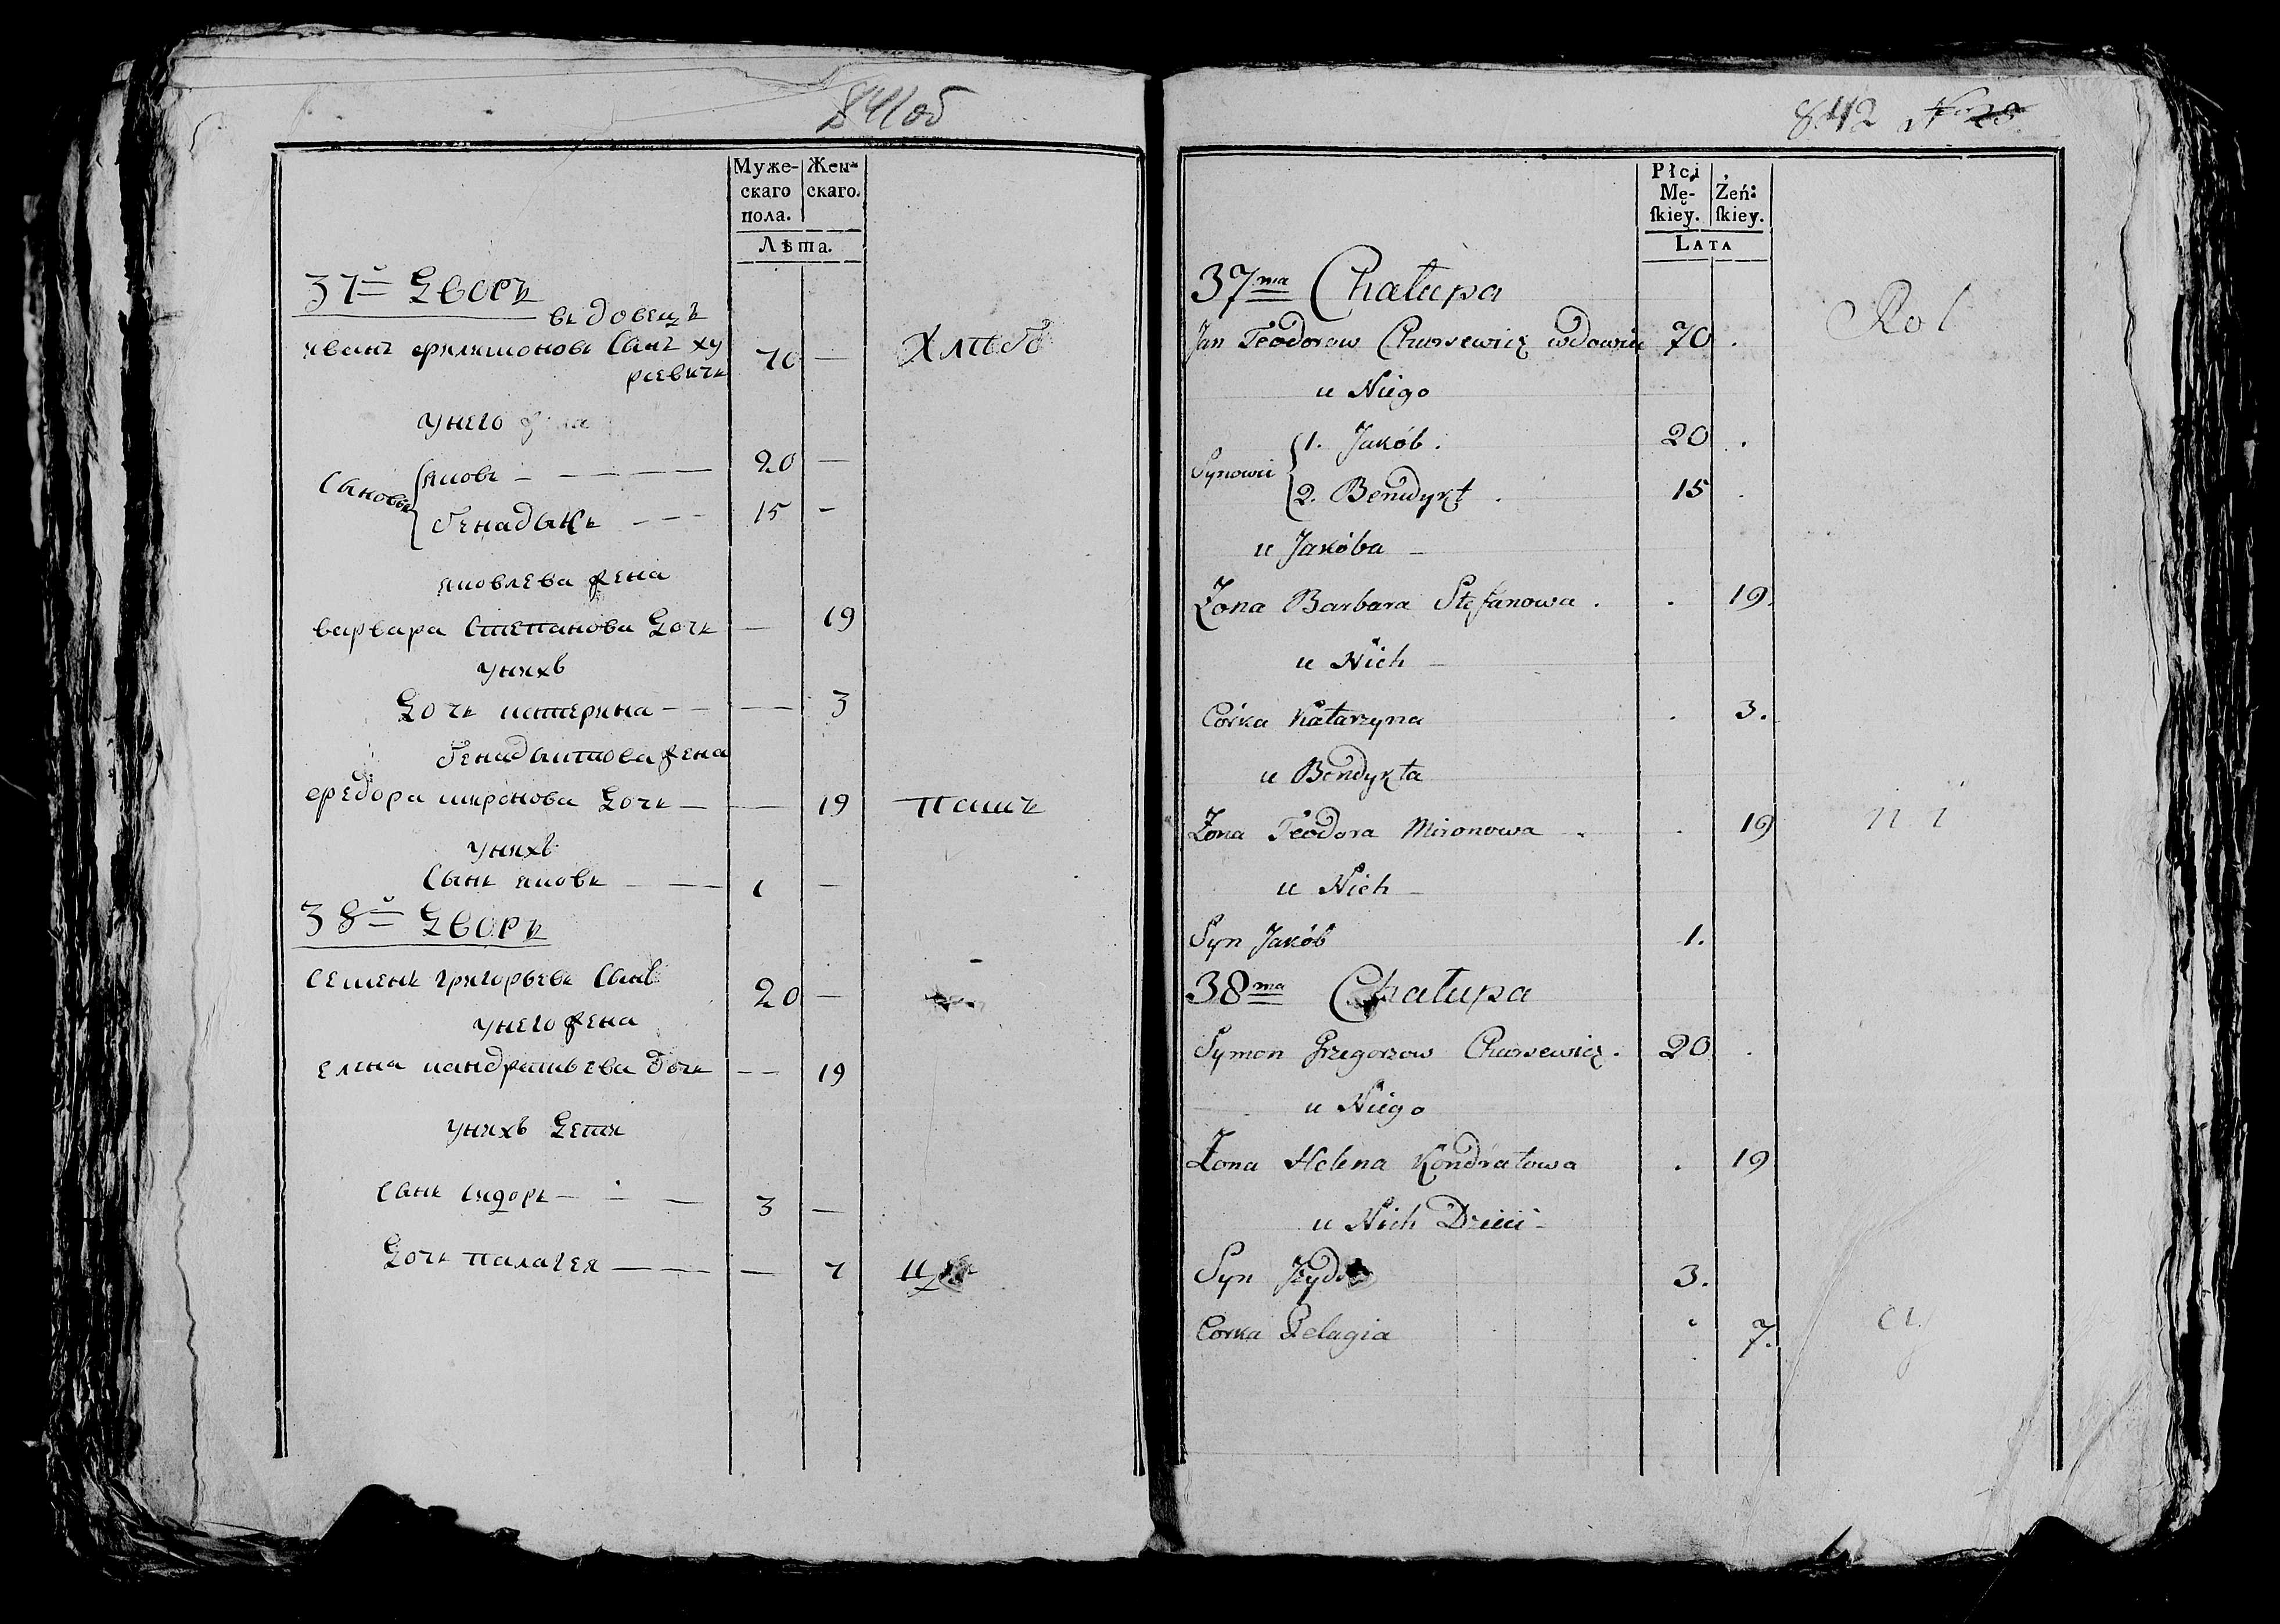 841об
Муже-
скаго
пола.
Жен-
скаго.
Лѣта.
37й Дворъ
въдовецъ
иванъ филимоновъ Сынъ ху
рсевичъ 70 — Хлѣбо
унего
Сыновья
яковъ — 20 —
бенадыкъ — 15 —
яковлева жена
варвара Степанова Дочь — 19
унихъ
Дочь катерина — — 3
бенадыктова жена
федора миронова Дочь — — 19 Пашъ
унихъ
Сынъ яковъ — 1 —
38й Дворъ
Семенъ григорьевъ Сынъ 20 —
унего жена
елена кандратьева дочь — 19
унихъ Дети
Сынъ сидоръ — 3 —
Дочь палагея — — 7
842
Płci
Mę-
ſkiey.
Żeń-
ſkiey.
LATA
37ma Chałupa
Jan Teodorow Chursewicz wdowiec 70 . Rol
u Niego
Synowie
1. Jakób . 20 .
2. Benedykt . 15 .
u Jakóba —
Żona Barbara Stefanowa . . 19.
u Nich —
Córka Katarzyna . 3.
u Bendykta
Żona Teodora Mironowa . . 19 ni
u Nich —
Syn Jakób 1.
38ma Chałupa
Symon Grzegorzow Chursewicz . 20 .
u Niego
Żona Helena Kondratowa . 19
u Nich Dzieci -
Syn 3.
Corka Pelagia . 7. cy